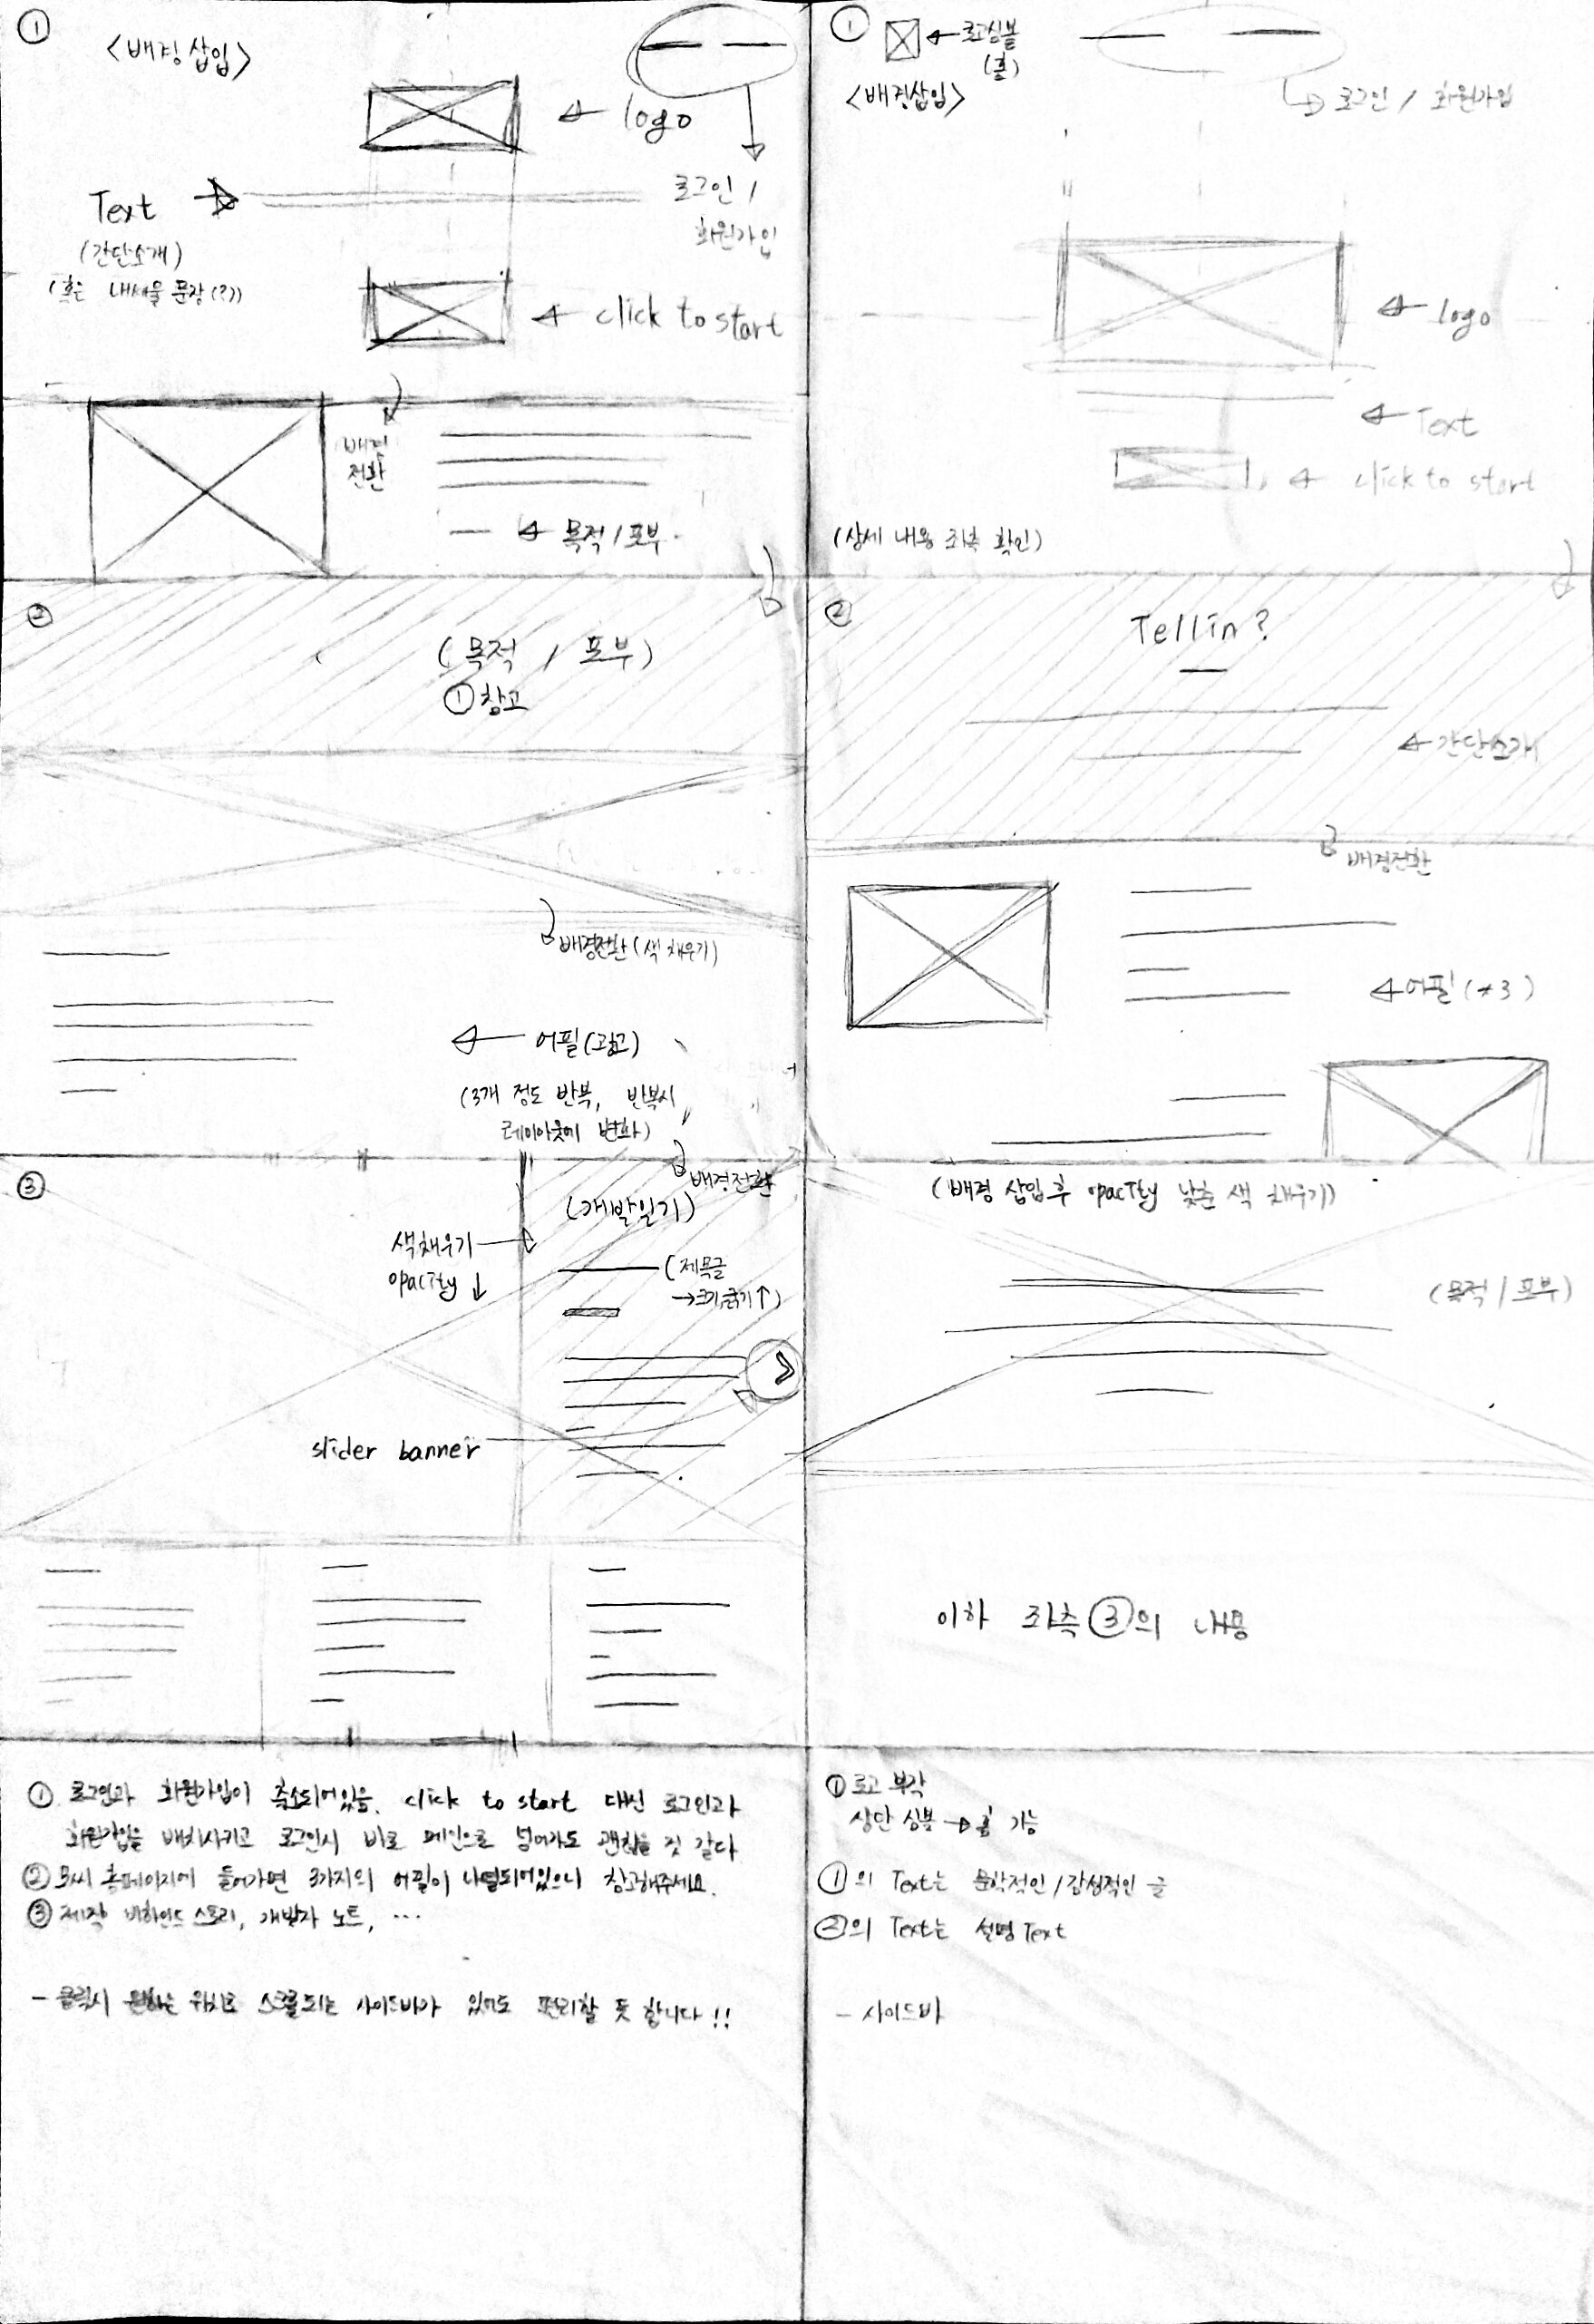 ①
<배경삽입>
← logo
로그인 /
회원가입
Text →
(간단소개)
(혹은 내세울 문장(?))
← click to start
배경
전환
← 목적 / 포부
②
(목적 / 포부)
① 참고
배경전환 (색 채우기)
← 어필(광고)
(3개 정도 반복, 반복시
레이아웃에 변화)
③
배경전환
(개발일기)
색채우기
opacity ↓
(제목글
→크기,굵기↑)
slider banner
① 로그인과 회원가입이 축소되어있음. click to start 대신 로그인과
회원가입을 배치시키고 로그인시 바로 메인으로 넘어가도 괜찮을 것 같다
② 홈페이지에 들어가면 3가지의 어필이 나열되어있으니 참고해주세요.
③ 제작 비하인드 스토리, 개발자 노트, ...
- 클릭시 원하는 위치로 스크롤되는 사이드바가 있어도 편리할 듯 합니다!!
①
← 로고심볼
(홈)
<배경삽입>
→ 로그인 / 회원가입
← logo
← Text
← click to start
(상세 내용 좌측 확인)
②
Tellin?
← 간단소개
배경전환
← 어필 (*3)
(배경 삽입 후 opacity 낮춘 색 채우기)
(목적 / 포부)
이하 좌측 ③의 내용
① 로고 부각
상단 심볼 → 홈 가능
①의 Text는 문학적인/감성적인 글
②의 Text는 설명 Text
- 사이드바